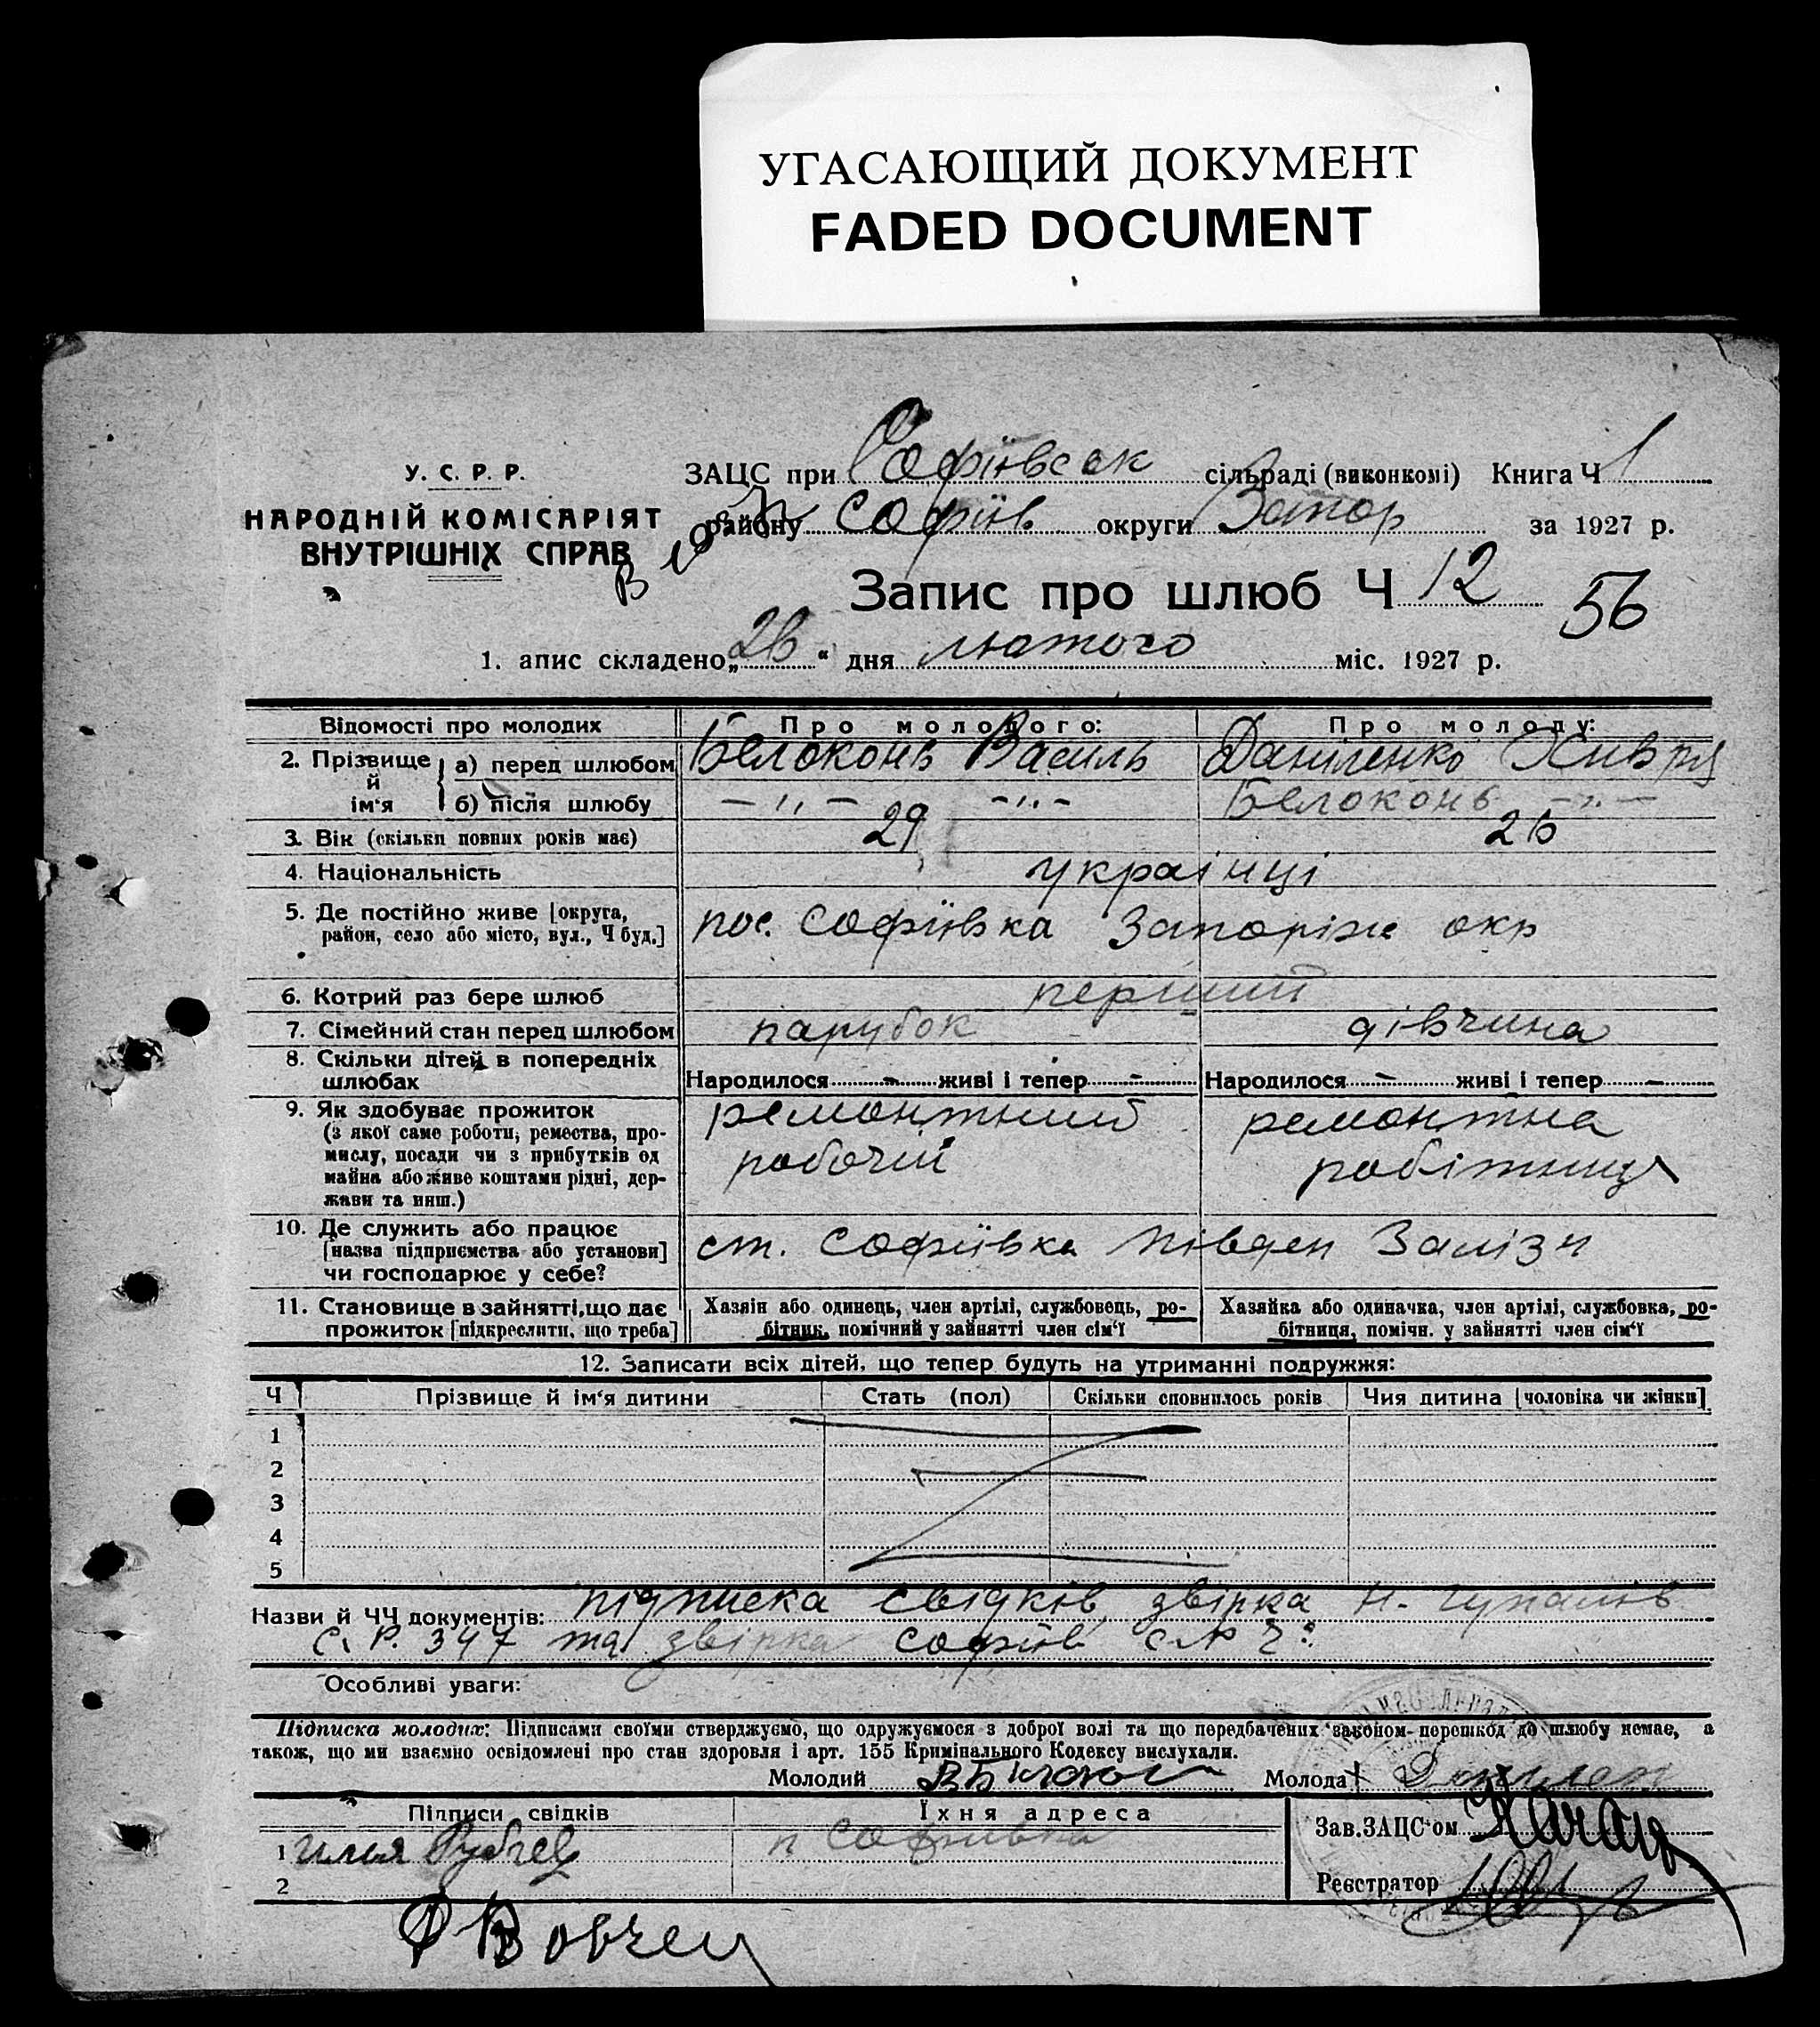 УГАСАЮЩИЙ ДОКУМЕНТ
FADED DOCUMENT
У. С. Р. Р.
НАРОДНІЙ КОМІСАРІЯТ
ВНУТРІШНІХ СПРАВ
ЗАЦС при Софіївськ сільраді (виконкомі) Книга Ч 1
району Софіїв. округи Запор за 1927 р.
Запис про шлюб Ч 12
56
1. апис складено „26“ дня лютого міс. 1927 р.
Відомості про молодих Про молодого: Про молоду:
2. Прізвище й ім'я а) перед шлюбом Белоконь Василь Даніленко Хивря
б) після шлюбу —„— —„— Белоконь —„—
3. Вік (скільки повних років має) 29 26
4. Національність українці
5. Де постійно живе [округа, район, село або місто, вул., Ч буд.] пос. Софіївка Запоріж окр
6. Котрий раз бере шлюб перший
7. Сімейний стан перед шлюбом парубок дівчина
8. Скільки дітей в попередніх шлюбах Народилося - живі і тепер - Народилося - живі і тепер -
9. Як здобуває прожиток ремонтний ремонтна
(з якої саме роботи, ремества, про-
мислу, посади чи з прибутків од робочій робітниця
майна або живе коштами рідні, дер-
жави та инш.)
10. Де служить або працює
[назва підприємства або установи] ст. Софіївка Півден Залізн
чи господарює у себе?
11. Становище в зайнятті, що дає Хазяін або одинець, член артілі, службовець, ро- Хазяйка або одиначка, член артілі, службовка, ро-
прожиток [підкреслити, що треба] бітник, помічний у зайнятті член сім'ї бітниця, помічн. у зайнятті член сім'ї
12. Записати всіх дітей, що тепер будуть на утриманні подружжя:
Ч Прізвище й ім'я дитини Стать (пол) Скільки сповнилось років Чия дитина [чоловіка чи жінки]
1
2
3
4
5
Назви й ЧЧ документів: підписка свідків, звірка Н.
С. Р. 347 та звірка Софіїв
Особливі уваги:
Підписка молодих: Підписами своїми стверджуємо, що одружуємося з доброї волі та що передбачених законом перешкод до шлюбу немає, а
також, що ми взаємно освідомлені про стан здоровля і арт. 155 Кримінального Кодексу вислухали.
Молодий Молода
Підписи свідків Їхня адреса Зав. ЗАЦС'ом
1 Илья п Софиевка
2 Реєстратор